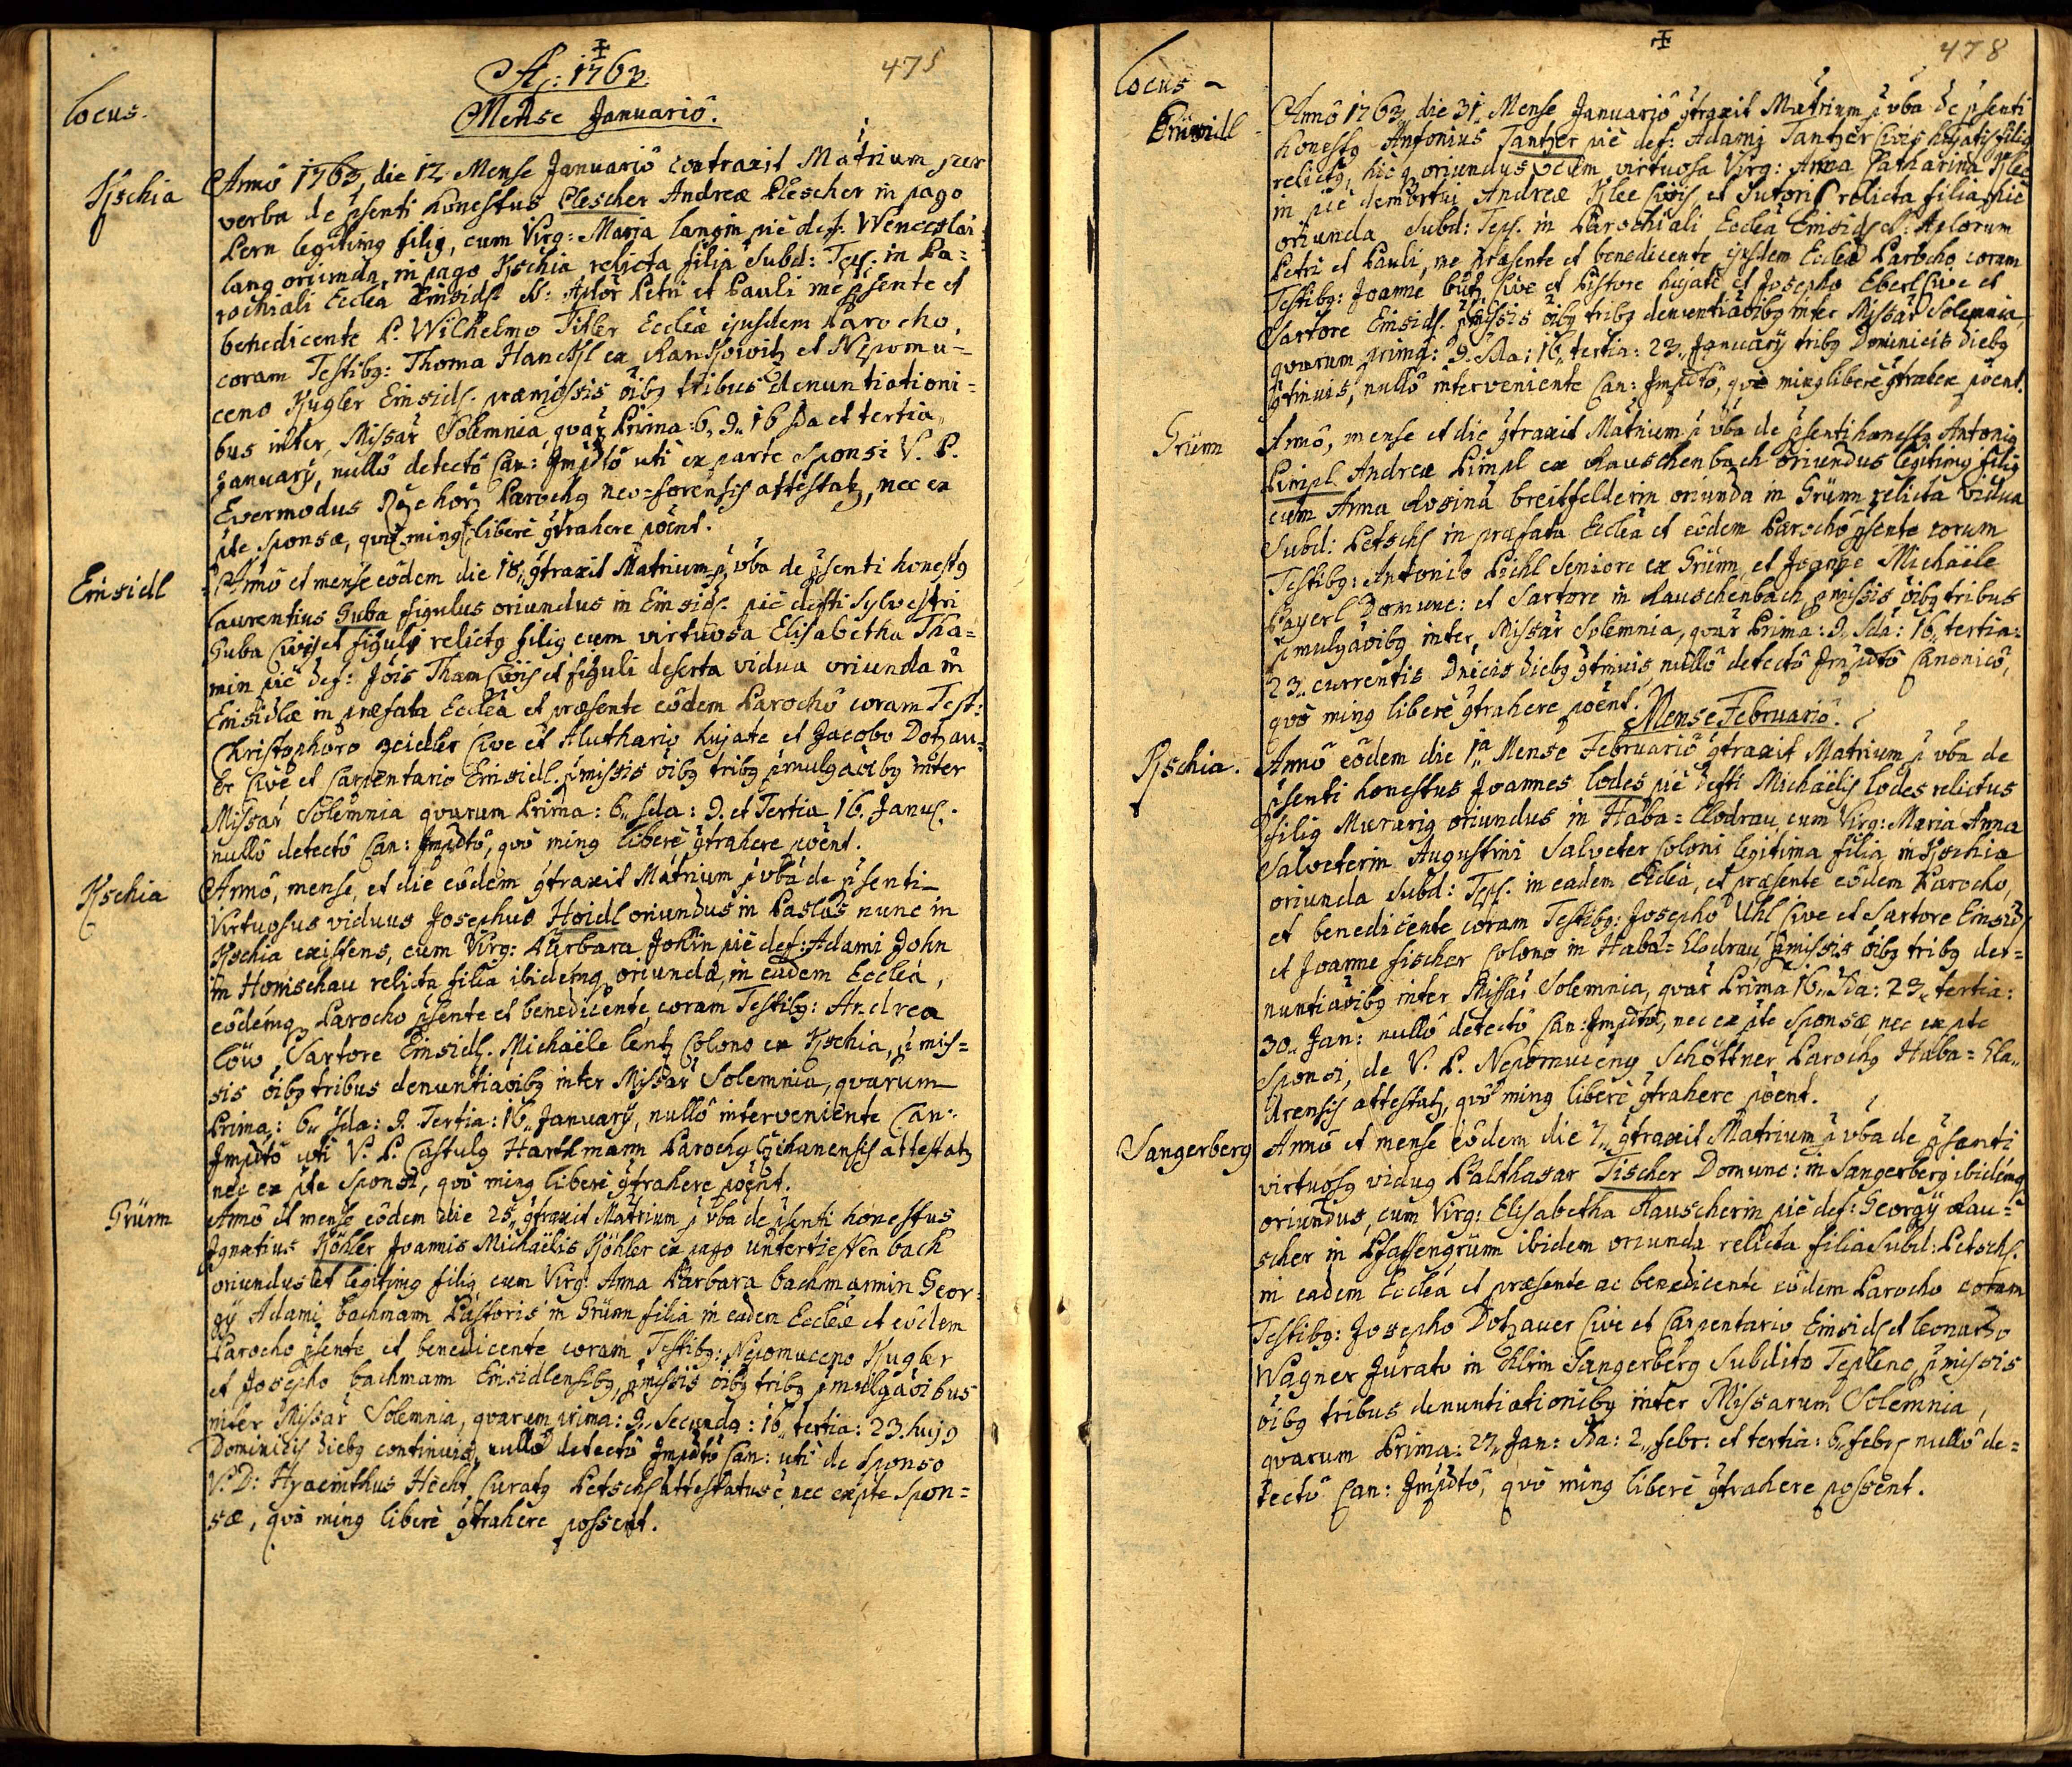 A: 1763.
475
Locus.
Mense Januariô.
Kschia
Annô 1763, die 12. Mense Januariô contraxit Matrium per
verba de p̄senti honestus Plescher Andreæ Plescher in pago
Pern legitimg filig, cum Virg: Maria Langin piè def: Wenceslai
Lang oriunda, in pago Kschia relicta filia Subd: Tepl. in Pa=
rochiali Eccleâ Einsidl. SS: Aplor Petri et Pauli me p̄sente et
benedicente P. Wilhelmo Titler Eccleæ ejusdem Parocho,
coram Testibg: Thoma Hanckl ex Rankowitz et Nepomu=
ceno Kugler Einsidl. præmissis oibg tribus denuntiationi=
bus inter Missar Solemnia, quar Prima: 6, 9. 16 Sda et tertia
January, nullô detectô Can: Impdtô uti ex parte Sponsi V. P.
Evermodus Rzehorz Parochg neo=forensis attestatg, nec ex
pte Sponsæ, quò ming liberè gtrahere poènt.
Einsidl
Annô et mense eôdem die 18,, gtraxit Matrium p vba de p̄senti honestg
Laurentius Guba figulus oriundus in Einsidl. piè defti Sylvestri
Guba Civis et figuli relictg filig cum virtuosa Elisabetha Tha=
min piè def: Jois Tham Civis et figuli deserta vidua oriunda in
Einsidlæ in præfata Eccleâ et præsente eôdem Parochô coram Test:
Christophoro Zeidler Cive et Aluthario hujate et Jacobo Dotzau=
er Cive et Carpentario Einsidl. p̄missis oibg tribg p̄mulgaoibg inter
Missar Solemnia quarum Prima: 6,, Sda: 9. et Tertia 16. Janu.
nullô detectô Can: Impdtô, quò ming liberè gtrahere poènt.
Kschia
Annô, mense, et die eôdem gtraxit Matrium p vba de p̄senti
Virtuosus viduus Josephus Hoidl oriundus in Paslas nunc in
Kschia existens, cum Virg: Barbara Johin piè def: Adami John
in Honischau relicta filia ibidemg oriunda, in eadem Eccleâ,
eôdemg Parocho p̄sente et benedicente, coram Testibg: Andrea
Löw Sartore Einsidl. Michaële Lentz Colono ex Kschia, p̄mis=
sis oibg tribus denuntiaoibg inter Missar Solemnia, quarum
Prima: 6,, Sda: 9. Tertia: 16,, January, nullô interveniente Can:
Impdtô uti V. P. Castulg Hartlmann Parochg Lichanensis attestatg
nec ex pte Sponsi, quò ming liberè gtrahere poènt.
Grünn
Annô et mense eôdem die 25,, gtraxit Matrium p vba de p̄senti honestus
Ignatius Köhler Joannis Michaëlis Köhler ex pago untertieffenbach
oriundus et legitimg filig cum Virg: Anna Barbara Bachmannin Geor=
gy Adami Bachmann Pastoris in Grünn filia in eadem Eccleâ et eôdem
Parocho p̄sente et benedicente coram Testibg: Nepomuceno Kugler
et Josepho Bachmann Einsidlensibg, p̄missis oibg tribg p̄mulgaoibus
inter Missar Solemnia, quarum prima: 9,, Secunda: 16,, tertia: 23. hujg
Dominicis diebg continuis, nullô detectô Impdtô Can: uti de Sponso
V: D: Hyacinthus Hecht Curatg Petsch. attestatus è, nec ex pte Spon=
sæ, quò ming liberè gtrahere possent.
478
Locus
Einsidl
Annô 1763,, die 31. Mense Januariô gtraxit Matrium p vba de p̄senti
honestg Antonius Tantzer piè def: Adami Tantzer Civis hujatis filig
relictg, hic g oriundus, cum virtuosa Virg: Anna Catharina Klee
in piè demortui Andreæ Klee Civis et Sutoris relicta filia, hic
oriunda Subd: Tepl. in Parochiali Eccleâ Einsidl. SS: Aplorum
Petri et Pauli, me præsente et benedicente ejusdem Eccleæ Parocho coram
Testibg: Joanne Butz Cive et Pistore hujate et Josepho Eberl Cive et
Sartore Einsidl. p̄missis oibg tribg denuntiaoibg inter Missar Solemnia,
quarum prima: 9. Sda: 16,, tertia: 23,, January tribg Dominicis diebg
gtinuis, nullô interveniente Can: Impdtô, quò ming liberè gtrahere poènt.
Grünn
Annô, mense et die gtraxit Matrium p vba de p̄senti honestg Antonig
Pimpl Andreæ Pimpl ex Rauschenbach oriundus legitimg filig
cum Anna Rosina Breitfelderin oriunda in Grünn relicta vidua
Subd: Petsch. in præfata Eccleâ et eôdem Parochô p̄sente coram
Testibg: Antonio Pichl Seniore ex Grünn, et Joanne Michaële
Payerl Domunc: et Sartore in Rauschenbach, p̄missis oibg tribus
p̄mulgaoibg inter Missar Solemnia, quar Prima: 9,, Sda: 16,, tertia:
23,, currentis Dnicis diebg gtinuis, nullô detectô Impdtô Canonicô,
quò ming liberè gtrahere poènt.
Mense Februariô.
Kschia.
Annô eôdem die 1a,, Mense Februariô gtraxit Matrium p vba de
p̄senti honestus Joannes Lodes piè defti Michaëlis Lodes relictus
filig Murarig oriundus in Haba=Clodrau, cum Virg: Maria Anna
Salveterin Augustini Salveter Coloni legitima filia in Kschia
oriunda Subd: Tepl. in eadem Eccleâ, et præsente eôdem Parocho,
et benedicente coram Testibg: Josepho Uhl Cive et Sartore Einsidl.
et Joanne Fischer Colono in Haba=Clodrau, p̄missis oibg tribg de=
nuntiaoibg inter Missar Solemnia, quar Prima 16,, Sda: 23,, tertia:
30,, Jan: nullô detectô Can: Impdtô, nec ex pte Sponsæ nec ex pte
Sponsi, de V. P. Nepomuceng Schöttner Parochg Haba=Cla,,
drensis attestatg, quò ming liberè gtrahere poènt.
Sangerberg
Annô et mense eôdem die 7,, gtraxit Matrium p vba de p̄senti
virtuosg vidug Balthasar Tischer Domunc: in Sangerberg ibidemg
oriundus, cum Virg: Elisabetha Rauscherin piè def: Georgy Rau=
scher in Pfaffengrünn ibidem oriunda relicta filia Subd: Petsch.
in eadem Eccleâ et præsente ac benedicente eôdem Parocho coram
Testibg: Josepho Dotzauer Cive et Carpentario Einsidl. et Leonardo
Wagner Jurato in Sangerberg Subdito Teplens, p̄missis
oibg tribus denuntiationibg inter Missarum Solemnia,
quarum Prima: 27,, Jan: Sda: 2,, febr: et tertia: 6,, feb. nullô de=
tectô Can: Impdtô, quò ming liberè gtrahere possent.